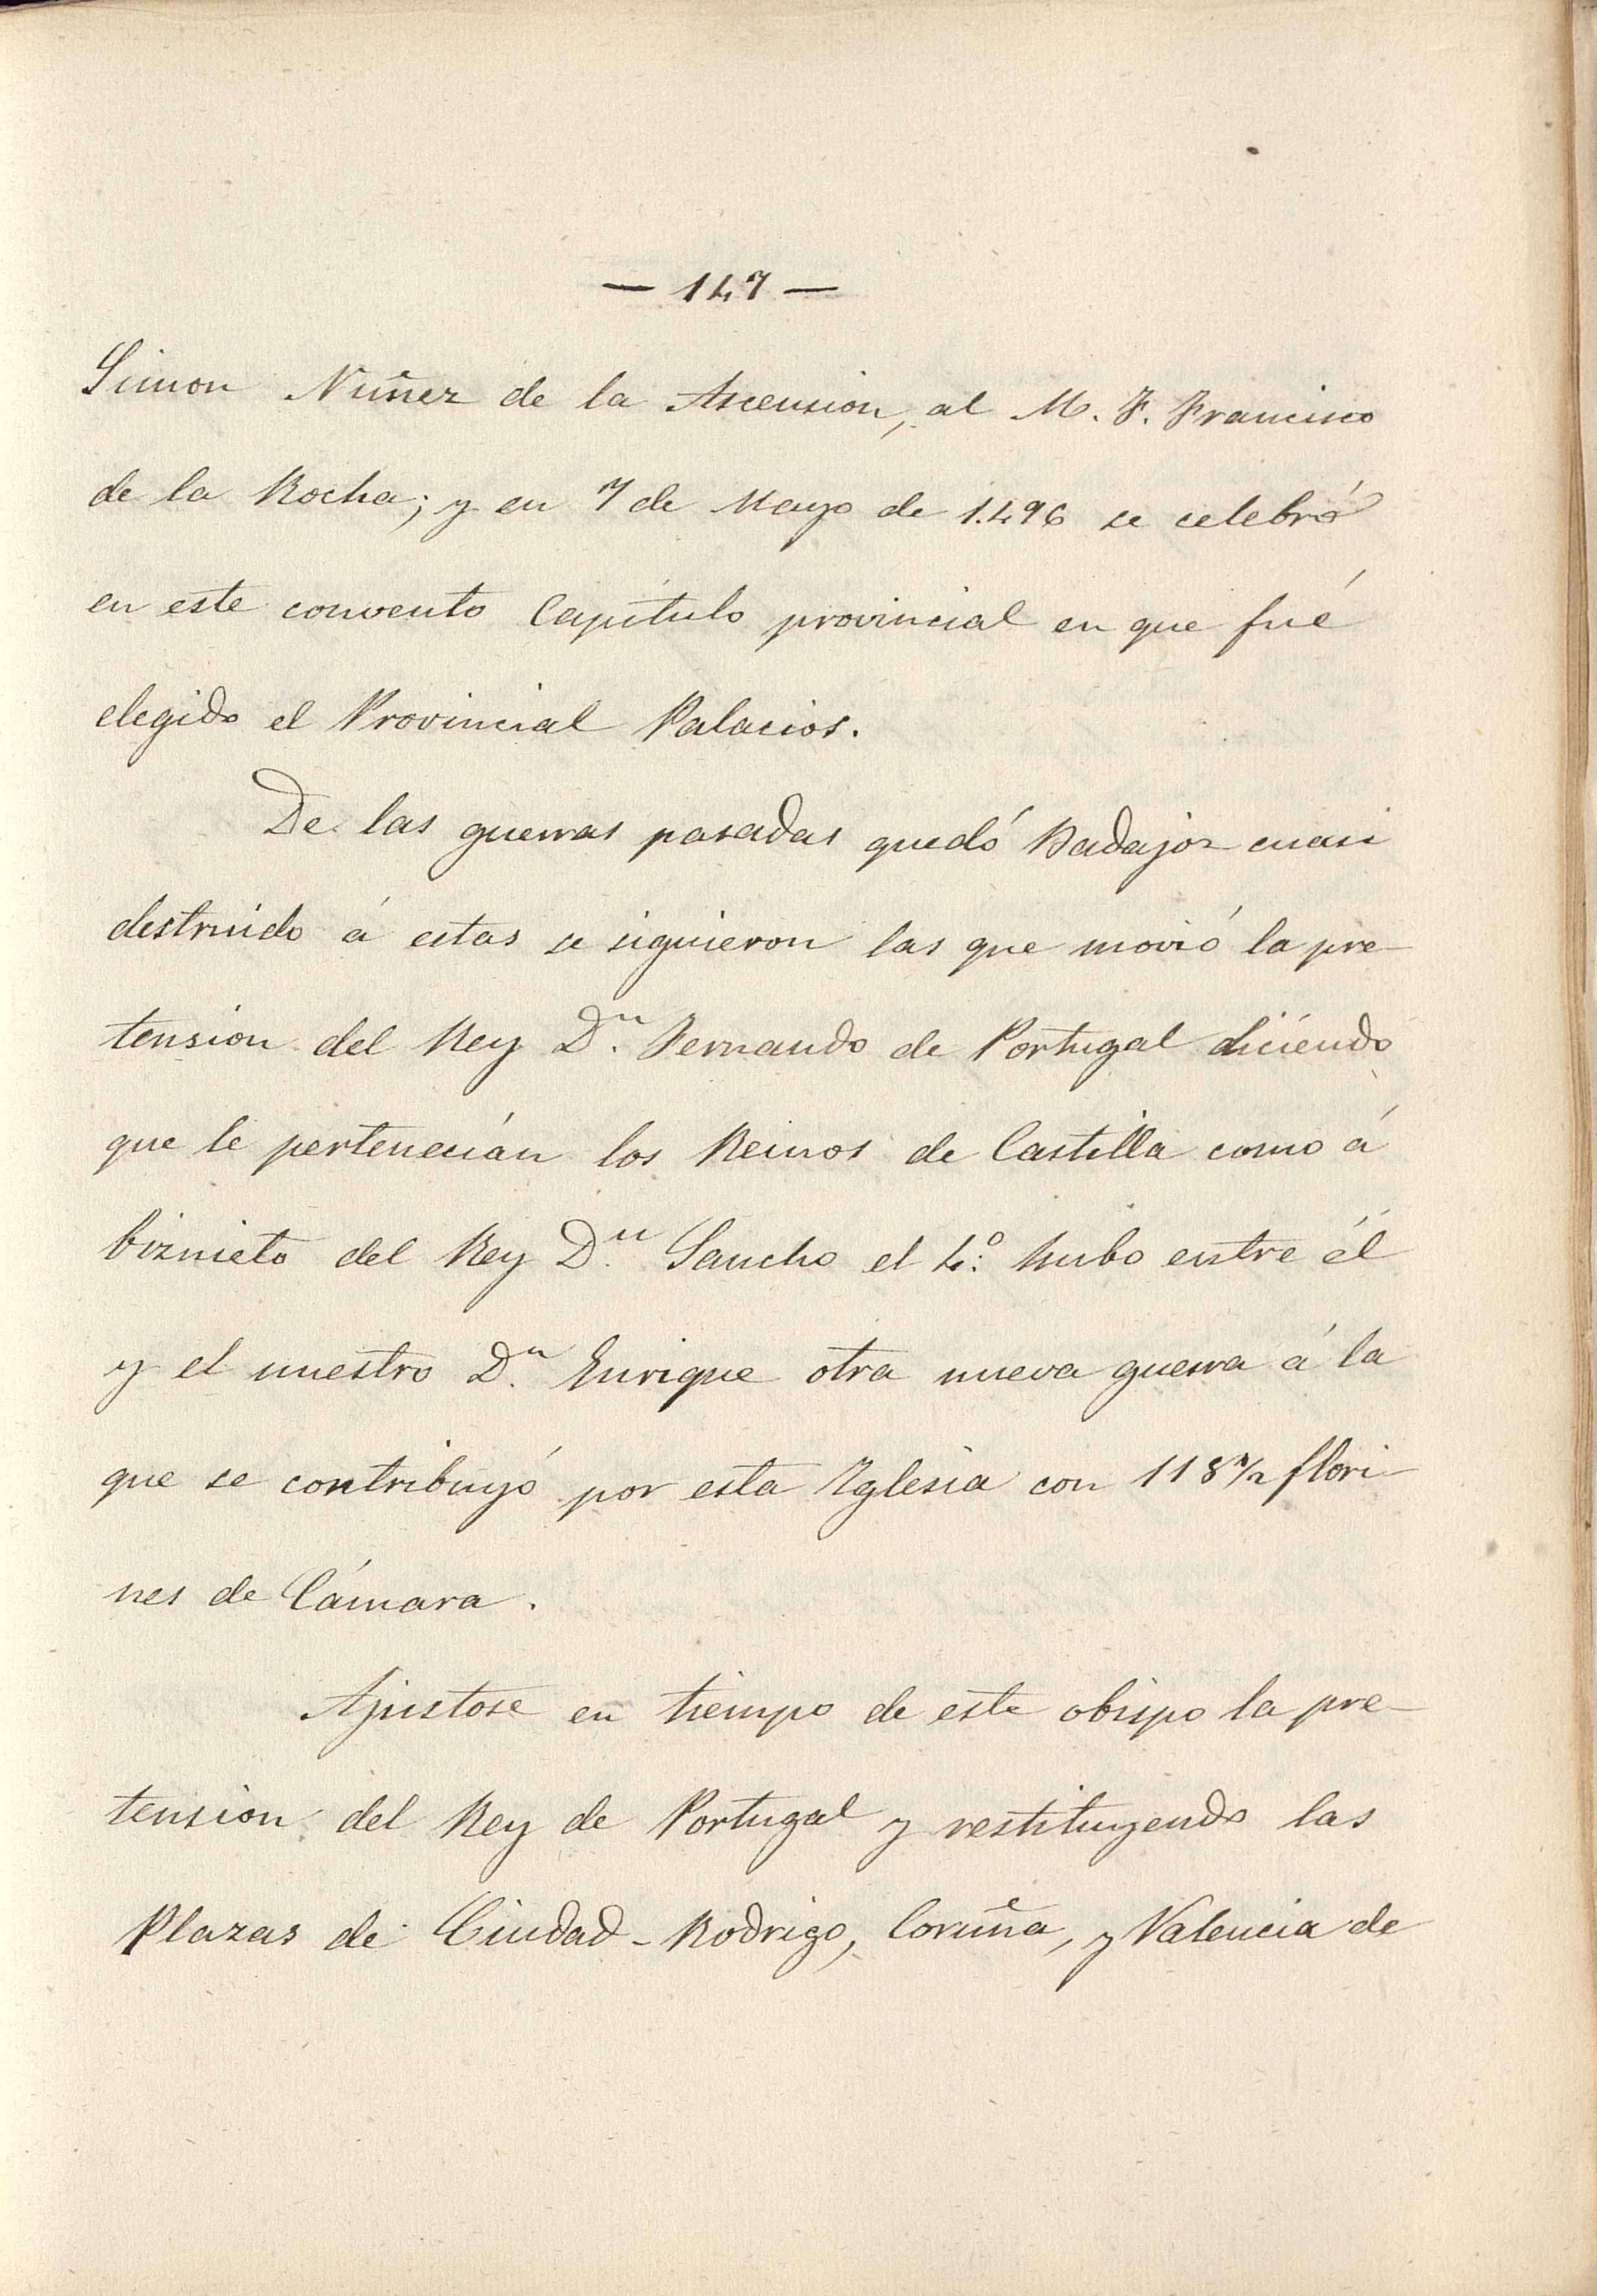 — 147 —
Simon Nuñez de la Ascension, al M. F. Francisco
de la Rocha; y en 7 de Mayo de 1.496 se celebró
en este convento Capítulo provincial en que fué
elegido el Provincial Palacios.
De las guerras pasadas quedó Badajoz cuasi
destruido á estas se siguieron las que movió la pre-
tension del Rey Dⁿ. Fernando de Portugal diciendo
que le pertenecián los Reinos de Castilla como á
biznieto del Rey Dⁿ. Sancho el 4.º hubo entre él
y el nuestro Dⁿ. Enrique otra nueva guerra á la
que se contribuyó por esta Yglesia con 118 1/2 flori-
nes de Cámara.
Ajustose en tiempo de este obispo la pre-
tension del Rey de Portugal y restituyendo las
Plazas de Ciudad-Rodrigo, Coruña, y Valencia de